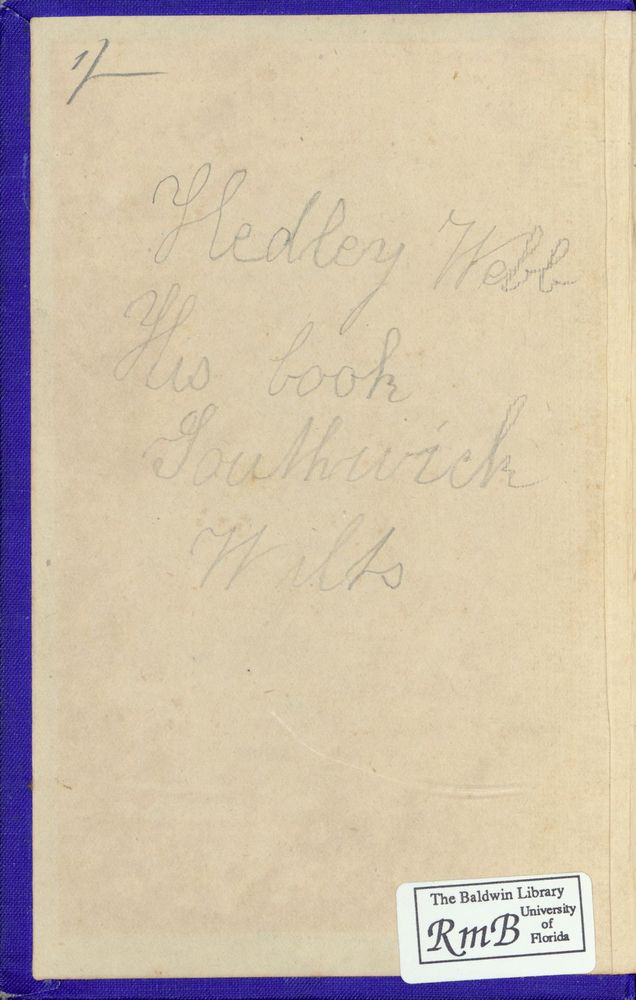 1/-
Hedley Webb
His book
Southwick
Wilts
The Baldwin Library
RmB University
of
Florida